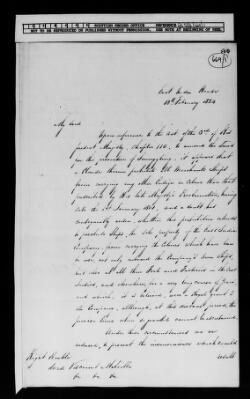 WESTERN RECORD OFFICE
NOT TO BE REPRODUCED OR PUBLISHED WITHOUT PERMISSION. SEE NOTE AT BEGINNING OF REEL
East India House
10th February 1824
My Lord
Upon reference to the Act of the 13th of His
present Majesty, Chapter 110, to amend the Laws
on the prevention of Smuggling, it appears that
a Clause therein prohibits all Merchants Ships
from carrying any other Ensign or Colours than that
prescribed by His late Majesty's Proclamation, bearing
date the 1st January 1801, and a doubt has
consequently arisen whether this prohibition extends
to preclude Ships, the sole property of the East India
Company, from carrying the Colours which have been
in use, not only aboard the Company's own Ships,
but also at all their Forts and Factories in the East
Indies, and elsewhere, for a very long course of years
and which, it is believed, were a Royal grant to
the Company, although, at this distant period, the
precise time when so granted cannot be ascertained
Under these circumstances we are
induced, to prevent the inconvenience which would
result
Right Honble
Lord Viscount Melville
&c &c &c